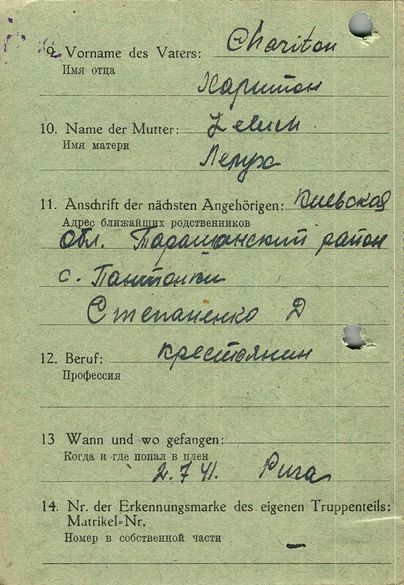 9. Vorname des Vaters: Chariton
Имя отца
Харитон
10. Name der Mutter:
Имя матери
11. Anschrift der nächsten Angehörigen: Киевская
Адрес ближайших родственников
обл. Таращанский район
с.
Степаненко Д
12. Beruf: крестьянин
Профессия
13 Wann und wo gefangen:
Когда и где попал в плен
2.7.41. Рига
14. Nr. der Erkennungsmarke des eigenen Truppenteils:
Matrikel-Nr.
Номер в собственной части
–